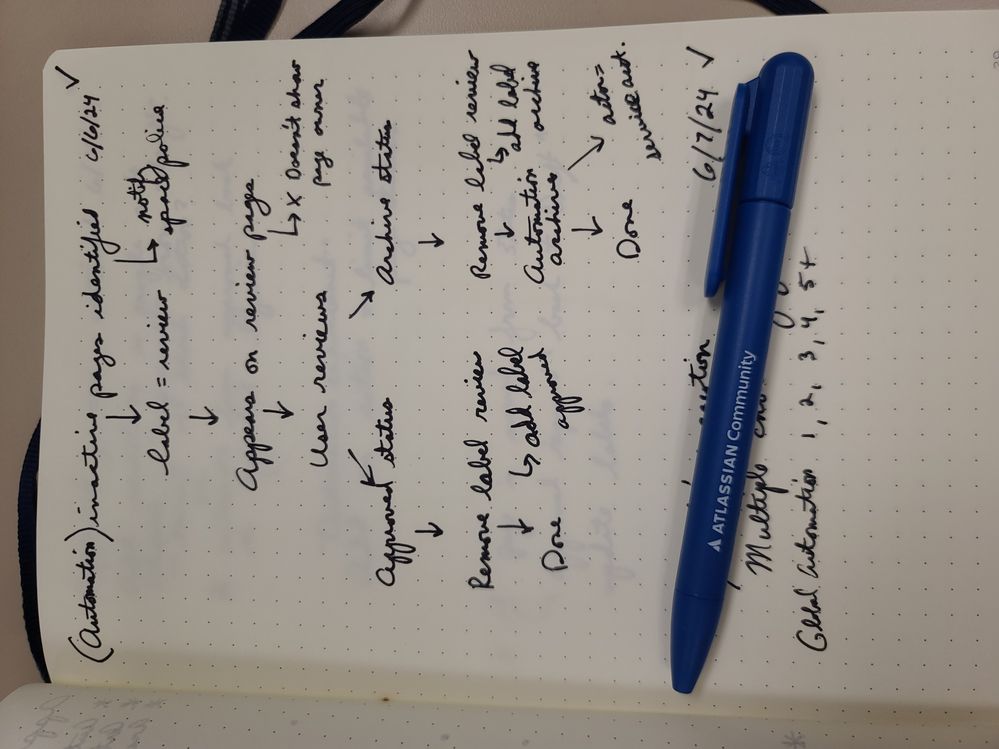 (Automation) inactive pages identified 6/6/24 ✓
↓ ↳ notify
label = review space police
↓
Appears on review pages
↓ ↳ x Doesn't show
User reviews page owner
↙ ↘
Approved status Archive status
↓ ↓
Remove label review Remove label review
↓ ↳ add label ↓ ↳ add label
Done approved Automation archive
archives
↓ ↘ actor =
Done service acct.
6/7/24 ✓
ATLASSIAN Community
Multiple
Global automation 1, 2, 3, 4, 5+